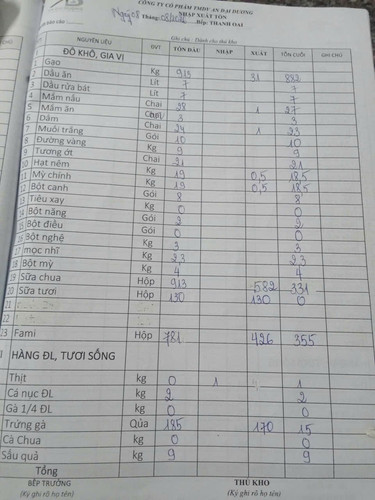 CÔNG TY CỔ PHẦN TMDV AN ĐẠI DƯƠNG
NHẬP XUẤT TỒN
Tháng: Bếp: THANH OAI
Ghi chú Dành cho thủ kho
NGUYÊN LIỆU ĐVT TỒN ĐẦU NHẬP XUẤT TỒN CUỐI GHI CHÚ
ĐỒ KHÔ, GIA VỊ
1 Gạo Kg 913 31 882
2 Dầu ăn Lít 7 7
3 Dầu rửa bát Lít 7 7
4 Mắm nấu Chai 28 1 27
5 Mắm ăn Chai 3 3
6 Dấm Chai 24 1 23
7 Muối trắng Gói 10 10
8 Đường vàng Kg 9 9
9 Tương ớt Chai 21 21
10 Hạt nêm Kg 19 0,5 18,5
11 Mỳ chính Kg 19 0,5 18,5
12 Bột canh Gói 8 8
13 Tiêu xay Kg 0 0
14 Bột năng Gói 2 2
15 Bột điều Gói 0 0
16 Bột nghệ Kg 3 3
17 mọc nhĩ Kg 23 23
18 Bột mỳ Kg 4 4
19 Sữa chua Hộp 913 582 331
20 Sữa tươi Hộp 130 130 0
21
22
23 Fami Hộp 781 426 355
HÀNG ĐL, TƯƠI SỐNG
Thịt kg 0 1 1
Cá nục ĐL kg 2 2
Gà 1/4 ĐL kg 0 0
Trứng gà Quả 185 170 15
Cà Chua kg 0 0
Sấu quả kg 9 9
Tổng
BẾP TRƯỞNG THỦ KHO
(Ký ghi rõ họ tên) (Ký ghi rõ họ tên)